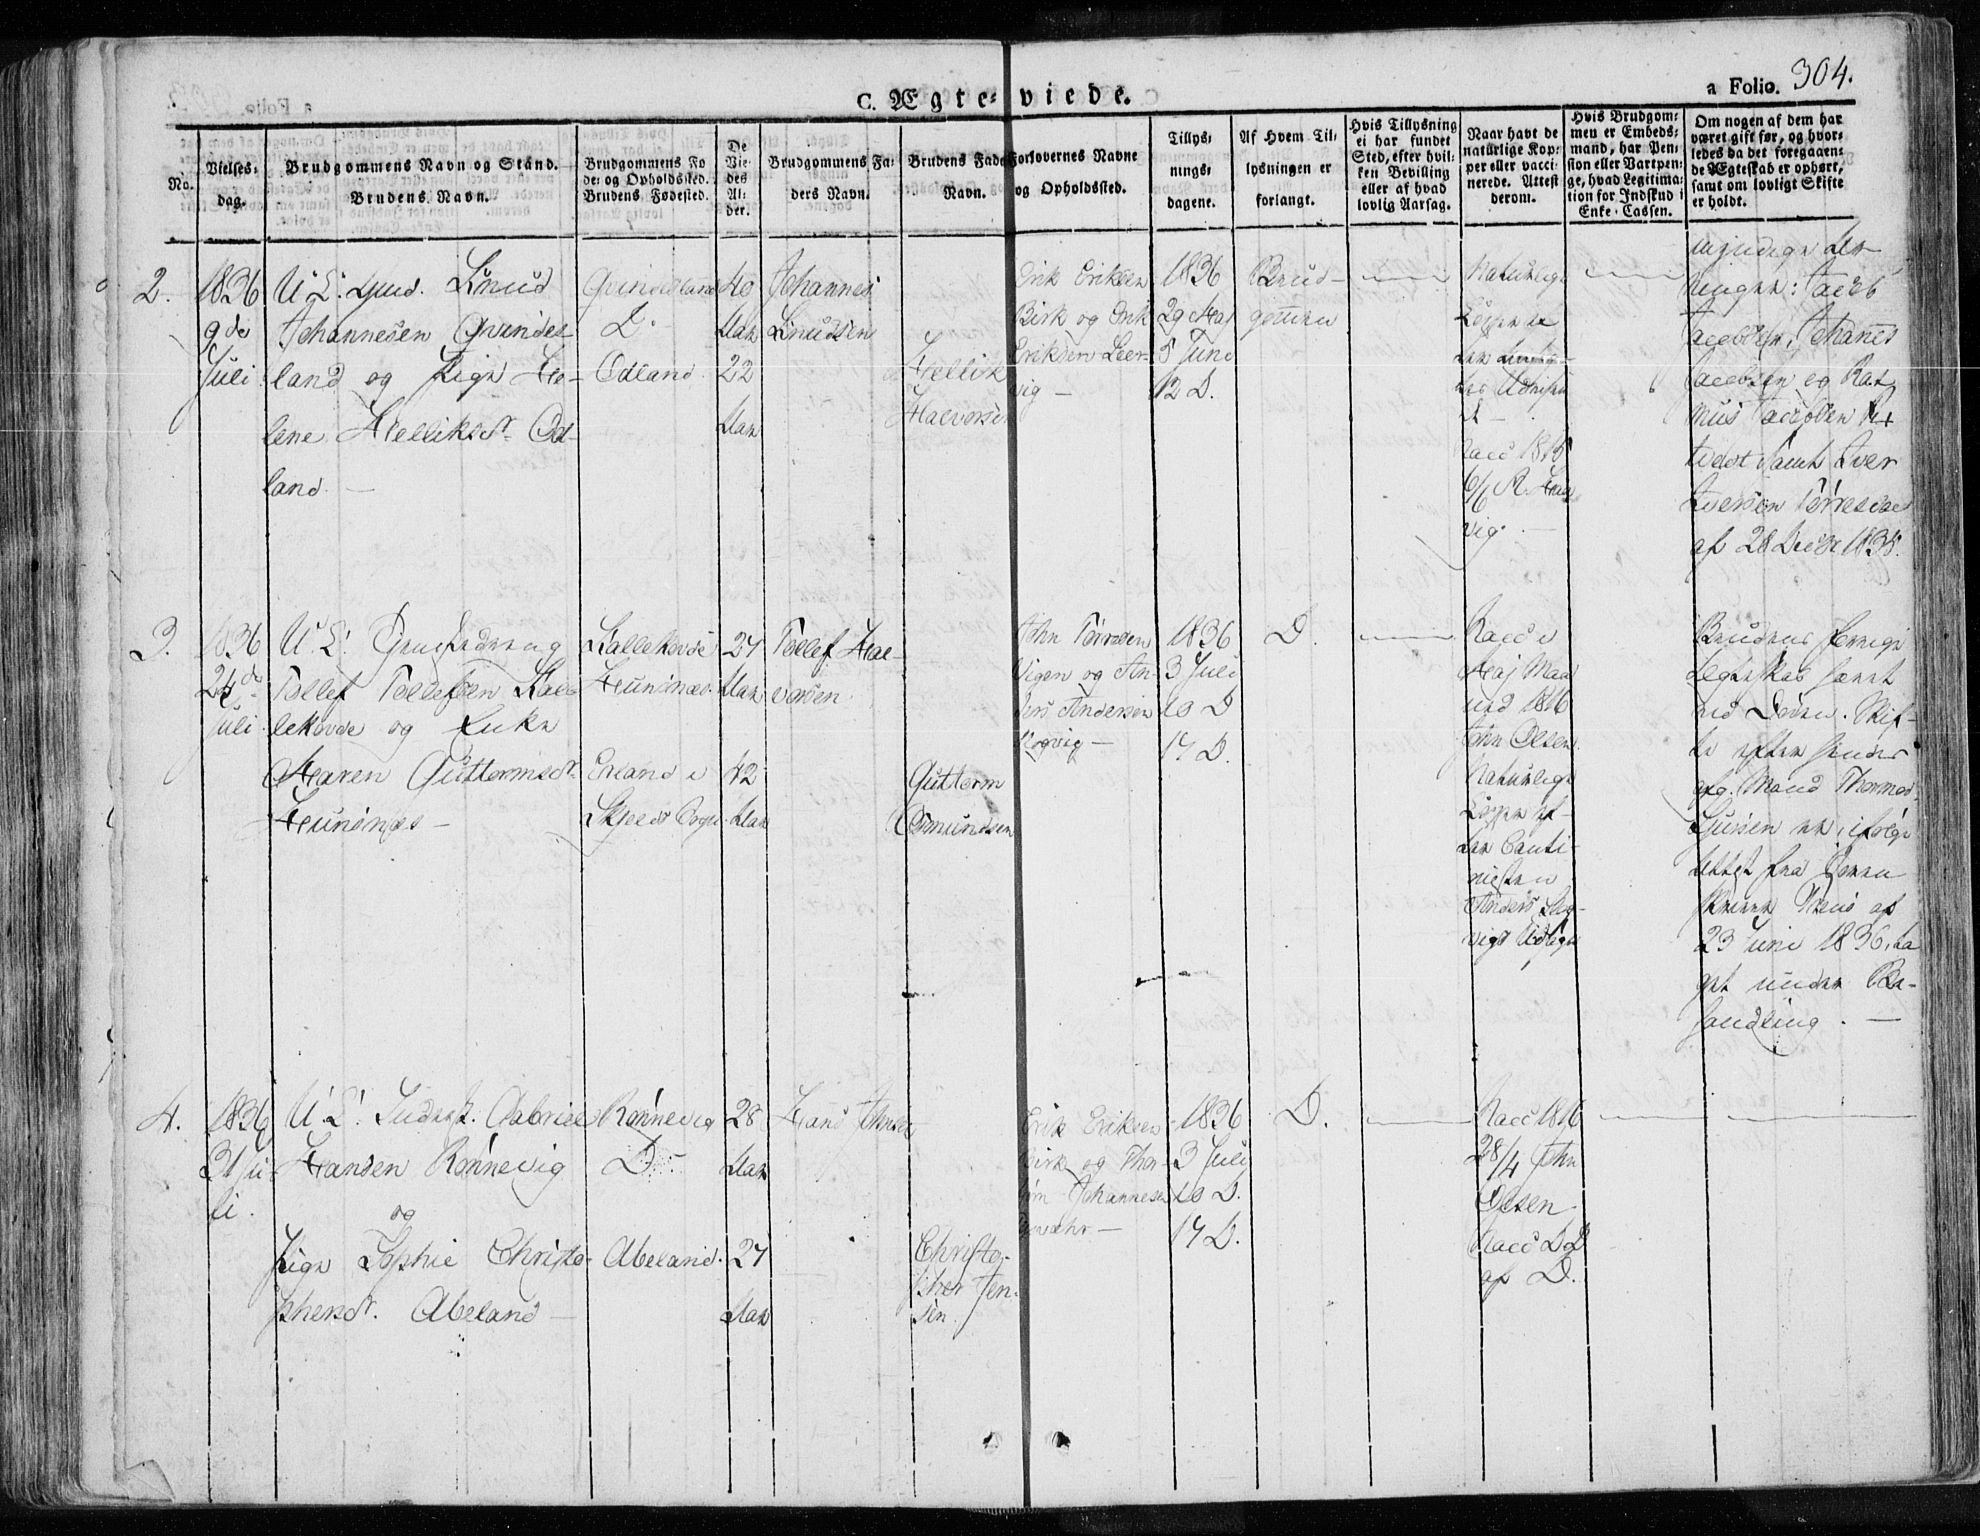 C. Ægte-viede.
a Folio. 304.
No.
Vielses-
dag.
Brudgommens Navn og Stand.
Brudens Navn.
Brudgommens Fø
de- og Opholdssted.
Brudens Fødested.
De
Vie-
des
Al-
der.
Brudgommens Fa-
ders Navn.
Brudens Faders
Navn.
Forlovernes Navne
og Opholdssted.
Tillys-
nings-
dagene.
Af Hvem Til-
lysningen er
forlangt.
Hvis Tillysning
ei har fundet
Sted, efter hvil-
ken Bevilling
eller af hvad
lovlig Aarsag.
Naar havt de
naturlige Kop-
per eller vacci-
nerede. Attest
derom.
Hvis Brudgom-
men er Embeds-
mand, har Pen-
sion eller Vartpen-
ge, hvad Legitima-
tion for Indskud i
Enke-Cassen.
Om nogen af dem har
været gift før, og hvor-
ledes da det foregaaen-
de Ægteskab er ophørt,
samt om lovligt Skifte
er holdt.
2.
1836
9de
Juli
U. C. Knud
Johannesen Qvindes-
land og Pige He-
lene Helliksdr. Od-
land. —
Qvindesland
D.
Odland
40
Aar
22
Aar
Johannes
Knudsen
Hellik
Halvorsen
Erik Eriksen
Birk og Erik
Eriksen Leer-
vig —
1836
29 Maj
5 Juni
12 D.
Brud-
gommen
Naturlige
Kopper
Vacc 1815
6/6
vig. —
Jacob
Jacobsen, Johanes
Jacobsen og Ras-
mus Jacobsen
samt Iver
Iversen
af 28 Decbr 1835.
3.
1836
24de
Juli
U. C.
Tollef Tollefsen Kal-
lekovde og Enke
Maren Guttormsdr.
Hunsnæs —
Kallekovde
Hunsnæs.
Erland i
Skjolds Sogn.
27
Aar
42
Aar
Tollef Hal-
vorsen
Guttorm
Osmundsen
John Torresen
Vigen og An-
ders Andersen
Slogvig —
1836
3 Juli
10 D
17 D.
D.
Vacc i
Maj Maa
ned 1816
John Olsen
Naturlige
Kopper af-
Anders Slog-
vigs Udsign
Brudens forrige
Ægteskab hævet
ved Døden. Skif-
te efter hendes
afg. Mand Thormod
Sjursen er, ifølge
Attest fra Soren-
skriver Krus af
23 Juni 1836, ta
get under Be-
handling. —
4.
1836
31 Ju
li.
U. C. Gabriel
Hansen Rønnevig
og
Pige Sophie Christo-
phersdr. Abeland —
Rønnevig
D.
Abeland.
28
Aar
27
Aar
Hans Johnsen
Christo-
pher Jen-
sen.
Erik Eriksen
Birk og Thor-
biørn Johannesen
1836
3 Juli
10 D.
17 D.
D.
Vacc 1816
28/4 John
Olsen
Vacc D D
af D.